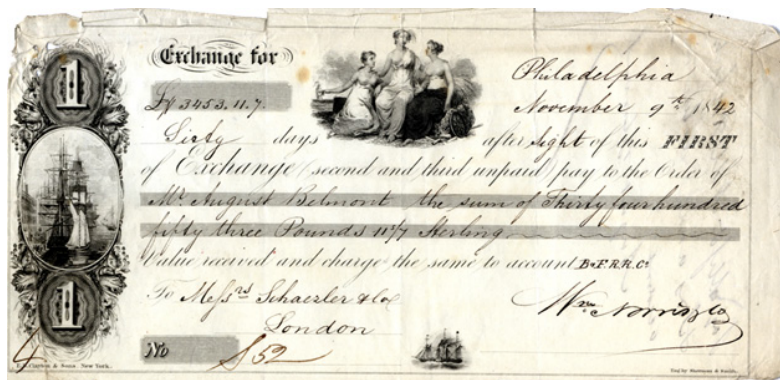 1
Exchange for
£ 3453.11.7.
Philadelphia
November 9th 1842
Sixty days after sight of this FIRST
of Exchange (second and third unpaid) pay to the Order of
Mr. August Belmont the sum of Thirty four hundred
fifty three Pounds 11/7 Sterling
Value received and charge the same to account B&F.R.R.Co
To Messrs Schaezler & Co
London
Wm Norris & Co
No 852
1
4
& Sons. New York.